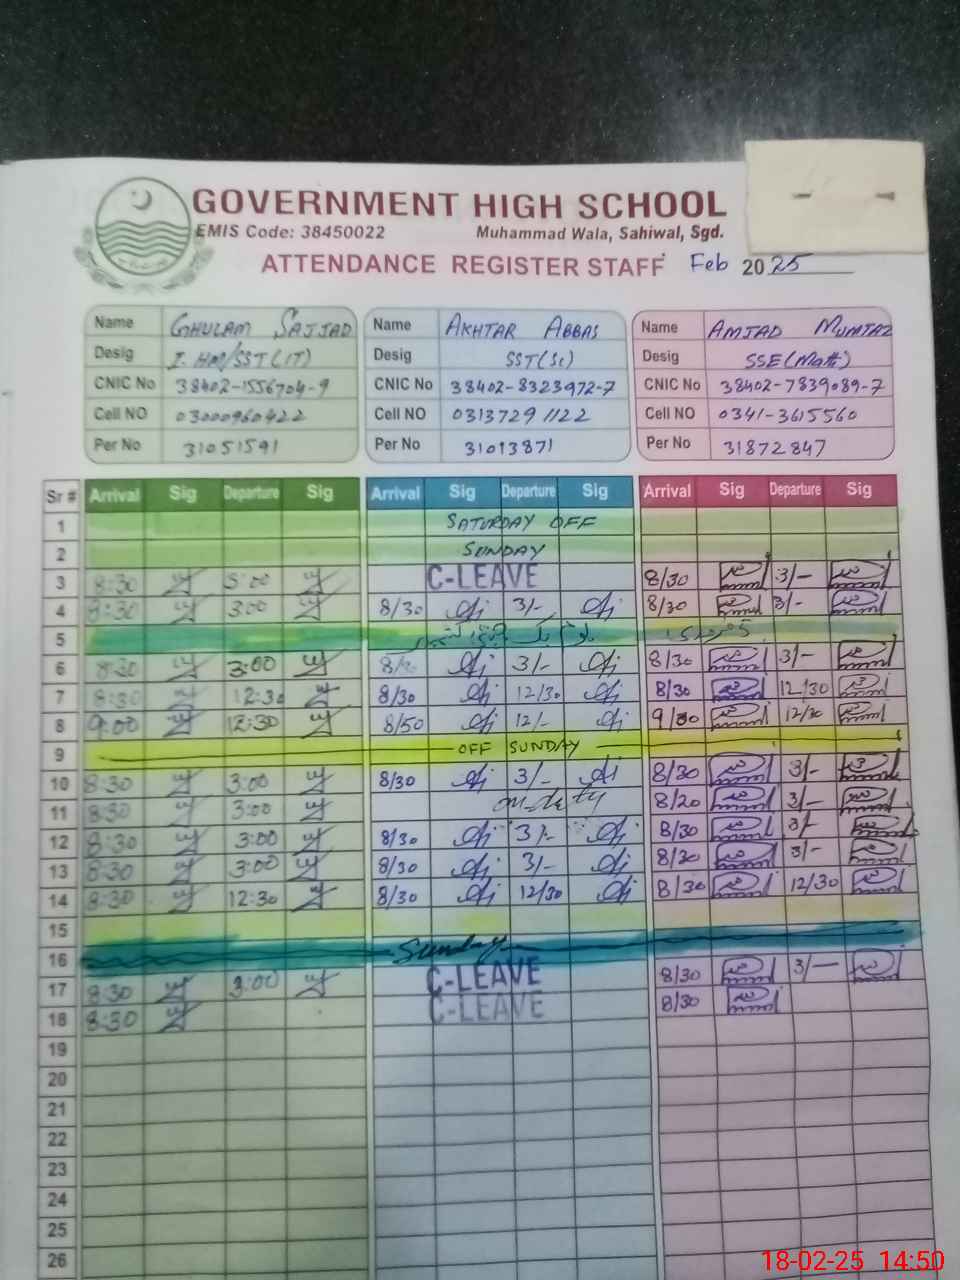 GOVERNMENT HIGH SCHOOL
EMIS Code: 38450022 Muhammad Wala, Sahiwal, Sgd.
ATTENDANCE REGISTER STAFF Feb 2025
Name GHULAM SAJJAD Name AKHTAR ABBAS Name AMJAD MUMTAZ
Desig I. HM/SST(IT) Desig SST(Sc) Desig SSE(Math)
CNIC No 38402-1556704-9 CNIC No 38402-8323972-7 CNIC No 38402-7839089-7
Cell NO 03000960422 Cell NO 0313729 1122 Cell NO 0341-3615560
Per No 31051591 Per No 31013871 Per No 31872847
Sr # Arrival Sig Departure Sig Arrival Sig Departure Sig Arrival Sig Departure Sig
1 SATURDAY OFF
2 SUNDAY
3 8:30 3:00 C-LEAVE 8/30 3/-
4 8:30 3:00 8/30 3/- 8/30 3/-
5 یوم یک جہتی کشمیر 5 فروری
6 8:30 3:00 3/- 8/30 3/-
7 8:30 12:30 8/30 12/30 8/30 12/30
8 9:00 12:30 8/50 12/- 9/00 12/30
9 OFF SUNDAY
10 8:30 3:00 8/30 3/- 8/30 3/-
11 8:30 3:00 on duty 8/20 3/-
12 8:30 3:00 8/30 3/- 8/30 3/-
13 8:30 3:00 8/30 3/- 8/30 3/-
14 8:30 12:30 8/30 12/30 8/30 12/30
15
16 Sunday
17 8:30 3:00 C-LEAVE 8/30 3/-
18 8:30 C-LEAVE 8/30
19
20
21
22
23
24
25
26
18-02-25 14:50